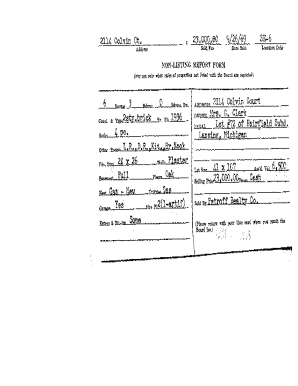 2114 Colvin Ct. $ 23,000.00 9/26/69 SS-6
Address Sold For Date Sold Location Code
NON-LISTING REPORT FORM
(For use only when sales of properties not listed with the Board are reported)
6 Rooms 3 Bdrms 0 Bdrms Dn.
Const. & Type 2sty.brick Yr. Blt. 1936
Baths
Other Rooms L.R., D.R., Kit., Br. Nook
Fdn. Size 24 x 26 Walls Plaster
Basement Full Floors Oak
Heat Gas - New Gas
Garage Yes Size 2(1-attd)
Extras & Rmks. Some
ADDRESS 2114 Colvin Court
OWNERS Mrs. G. Clark
LEGAL Lot #72 of Fairfield Subd.
Lansing, Michigan
Lot Size 41 x 107 Val. 6,500
Selling Price 23,000.00 Cash
Sold By Petroff Realty Co.
(Please return with your blue card when you reach the
Board fee)